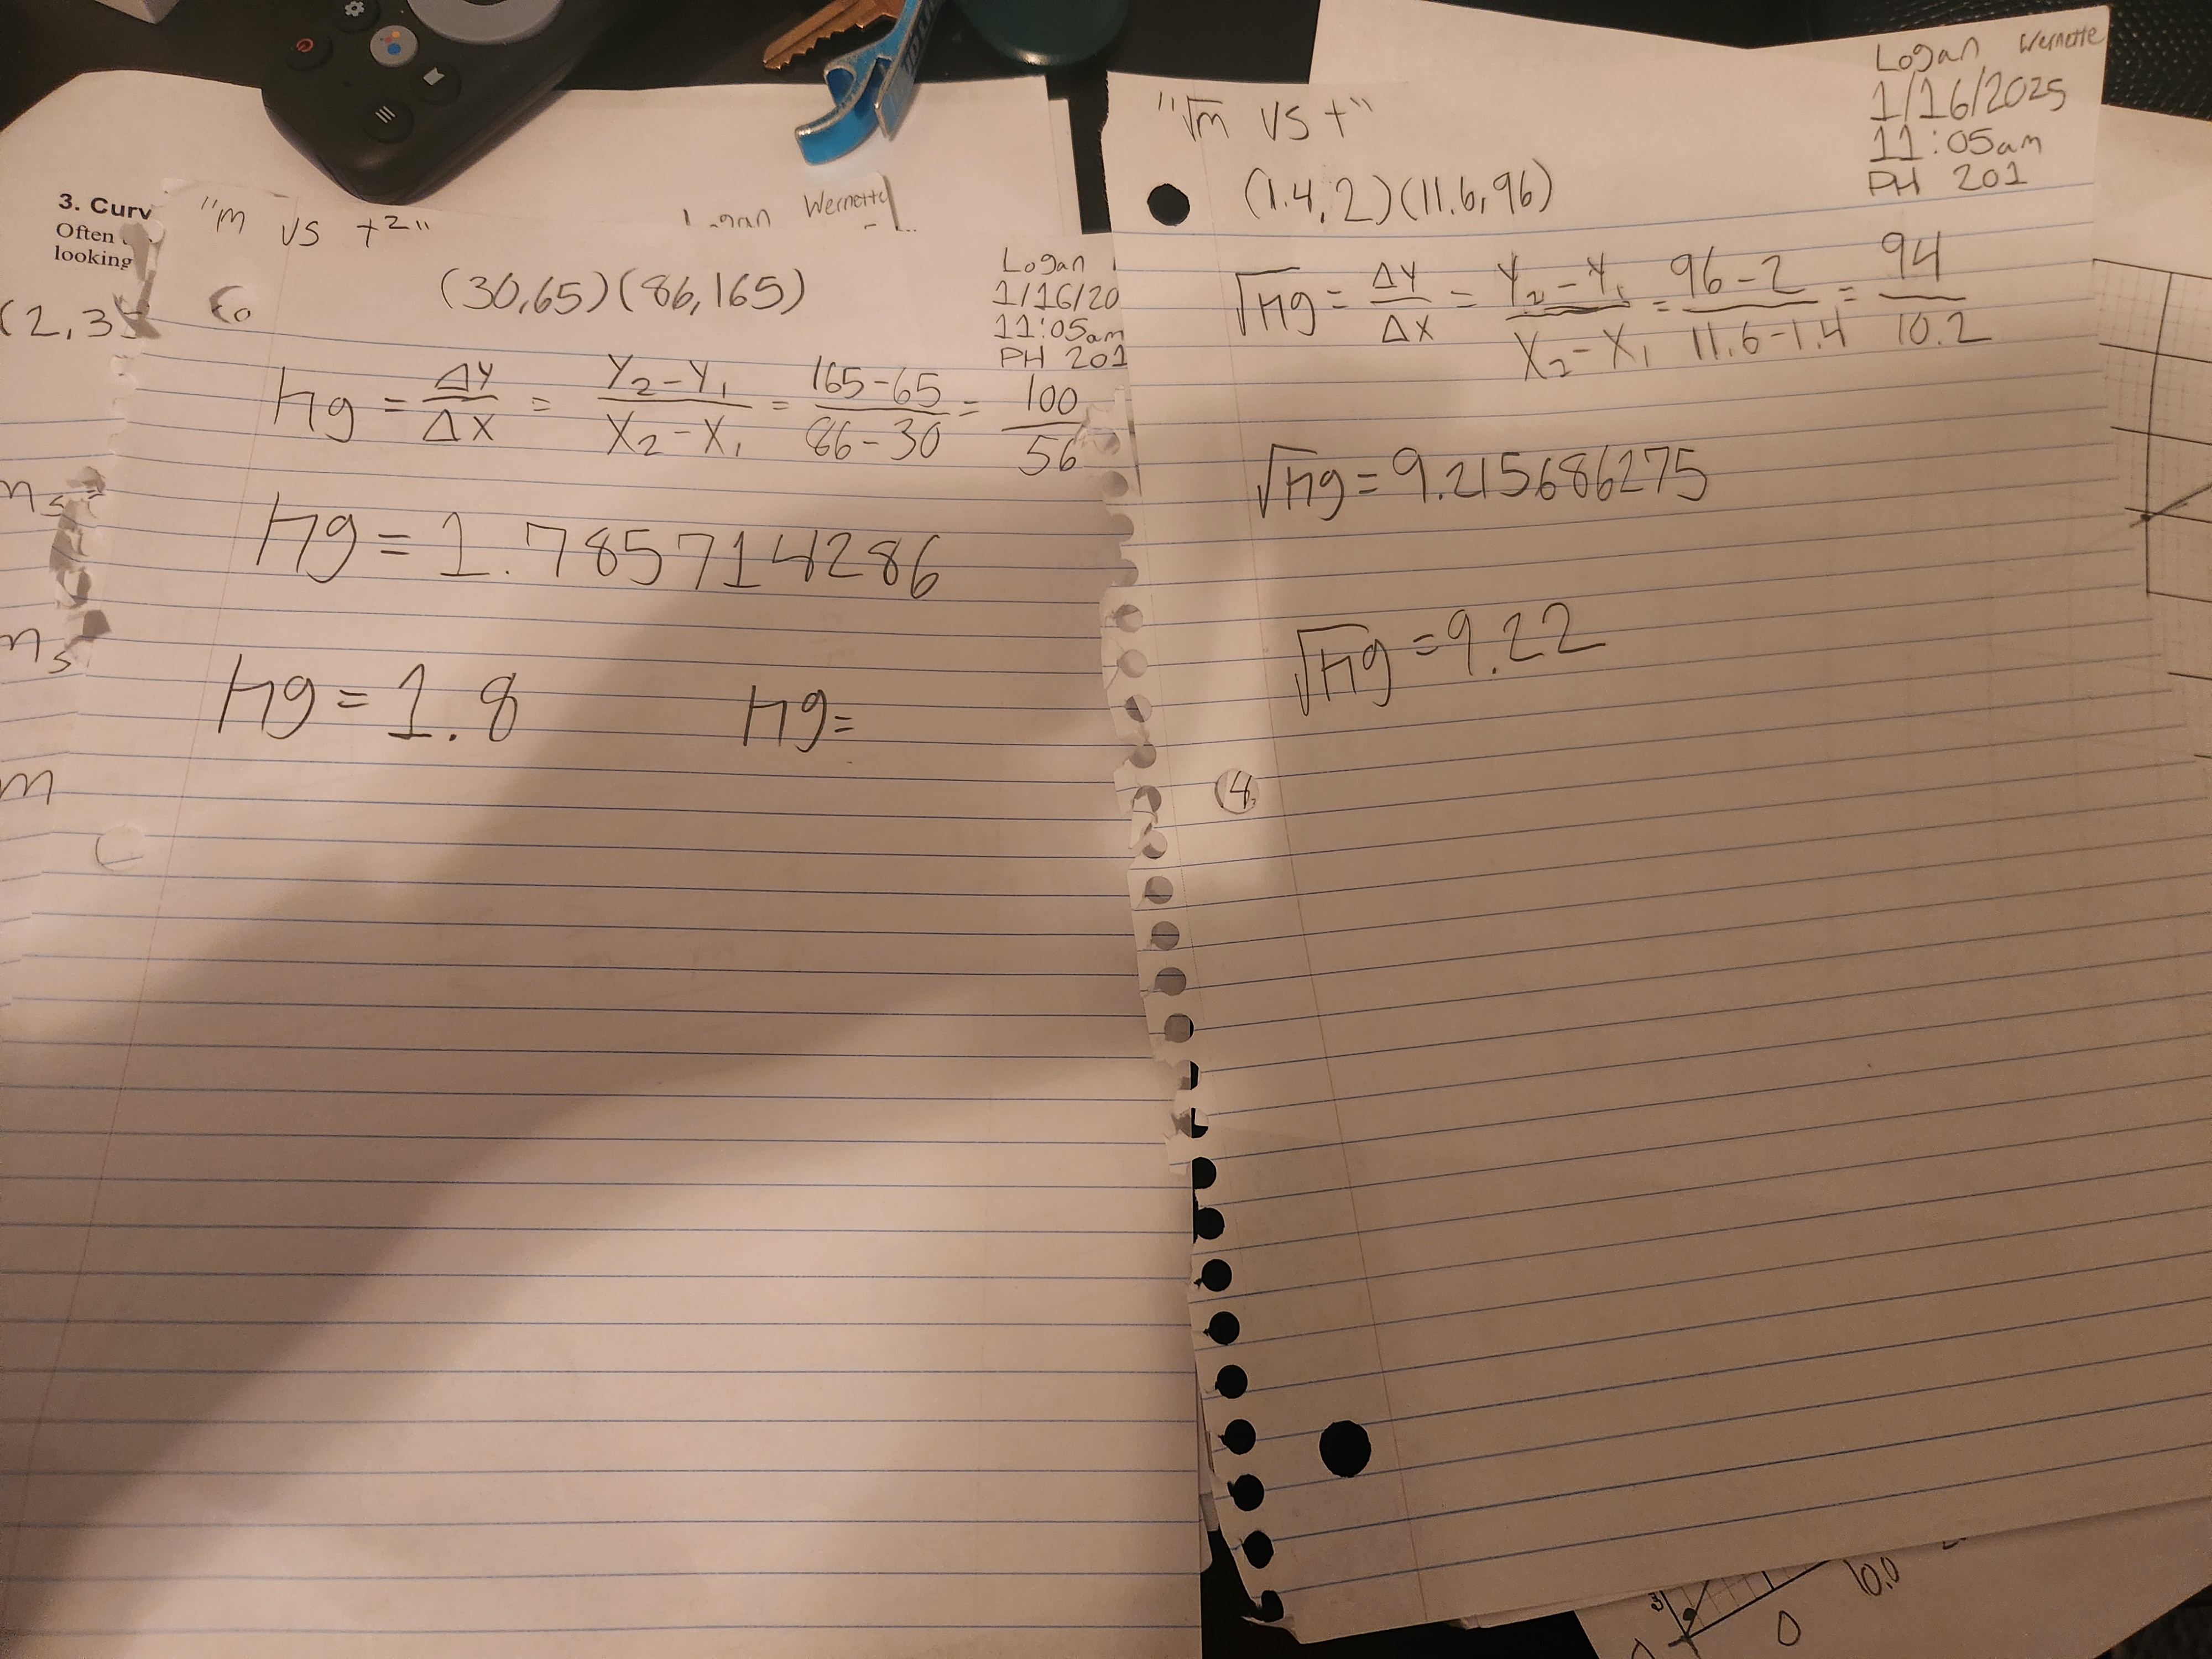 3. Curv
Often
looking
(2,3
m
"m vs t²"
Logan Wernette
(30,65)(86,165)
Logan
1/16/20
11:05am
PH 201
Hg = ΔY/ΔX = Y₂-Y₁/X₂-X₁ = 165-65/86-30 = 100/56
Hg = 1.785714286
Hg = 1.8
Hg=
"√m vs t"
Logan Wernette
1/16/2025
11:05am
PH 201
(1.4,2)(11.6,96)
√Hg = ΔY/ΔX = Y₂-Y₁/X₂-X₁ = 96-2/11.6-1.4 = 94/10.2
√Hg = 9.215686275
√Hg = 9.22
4.
0